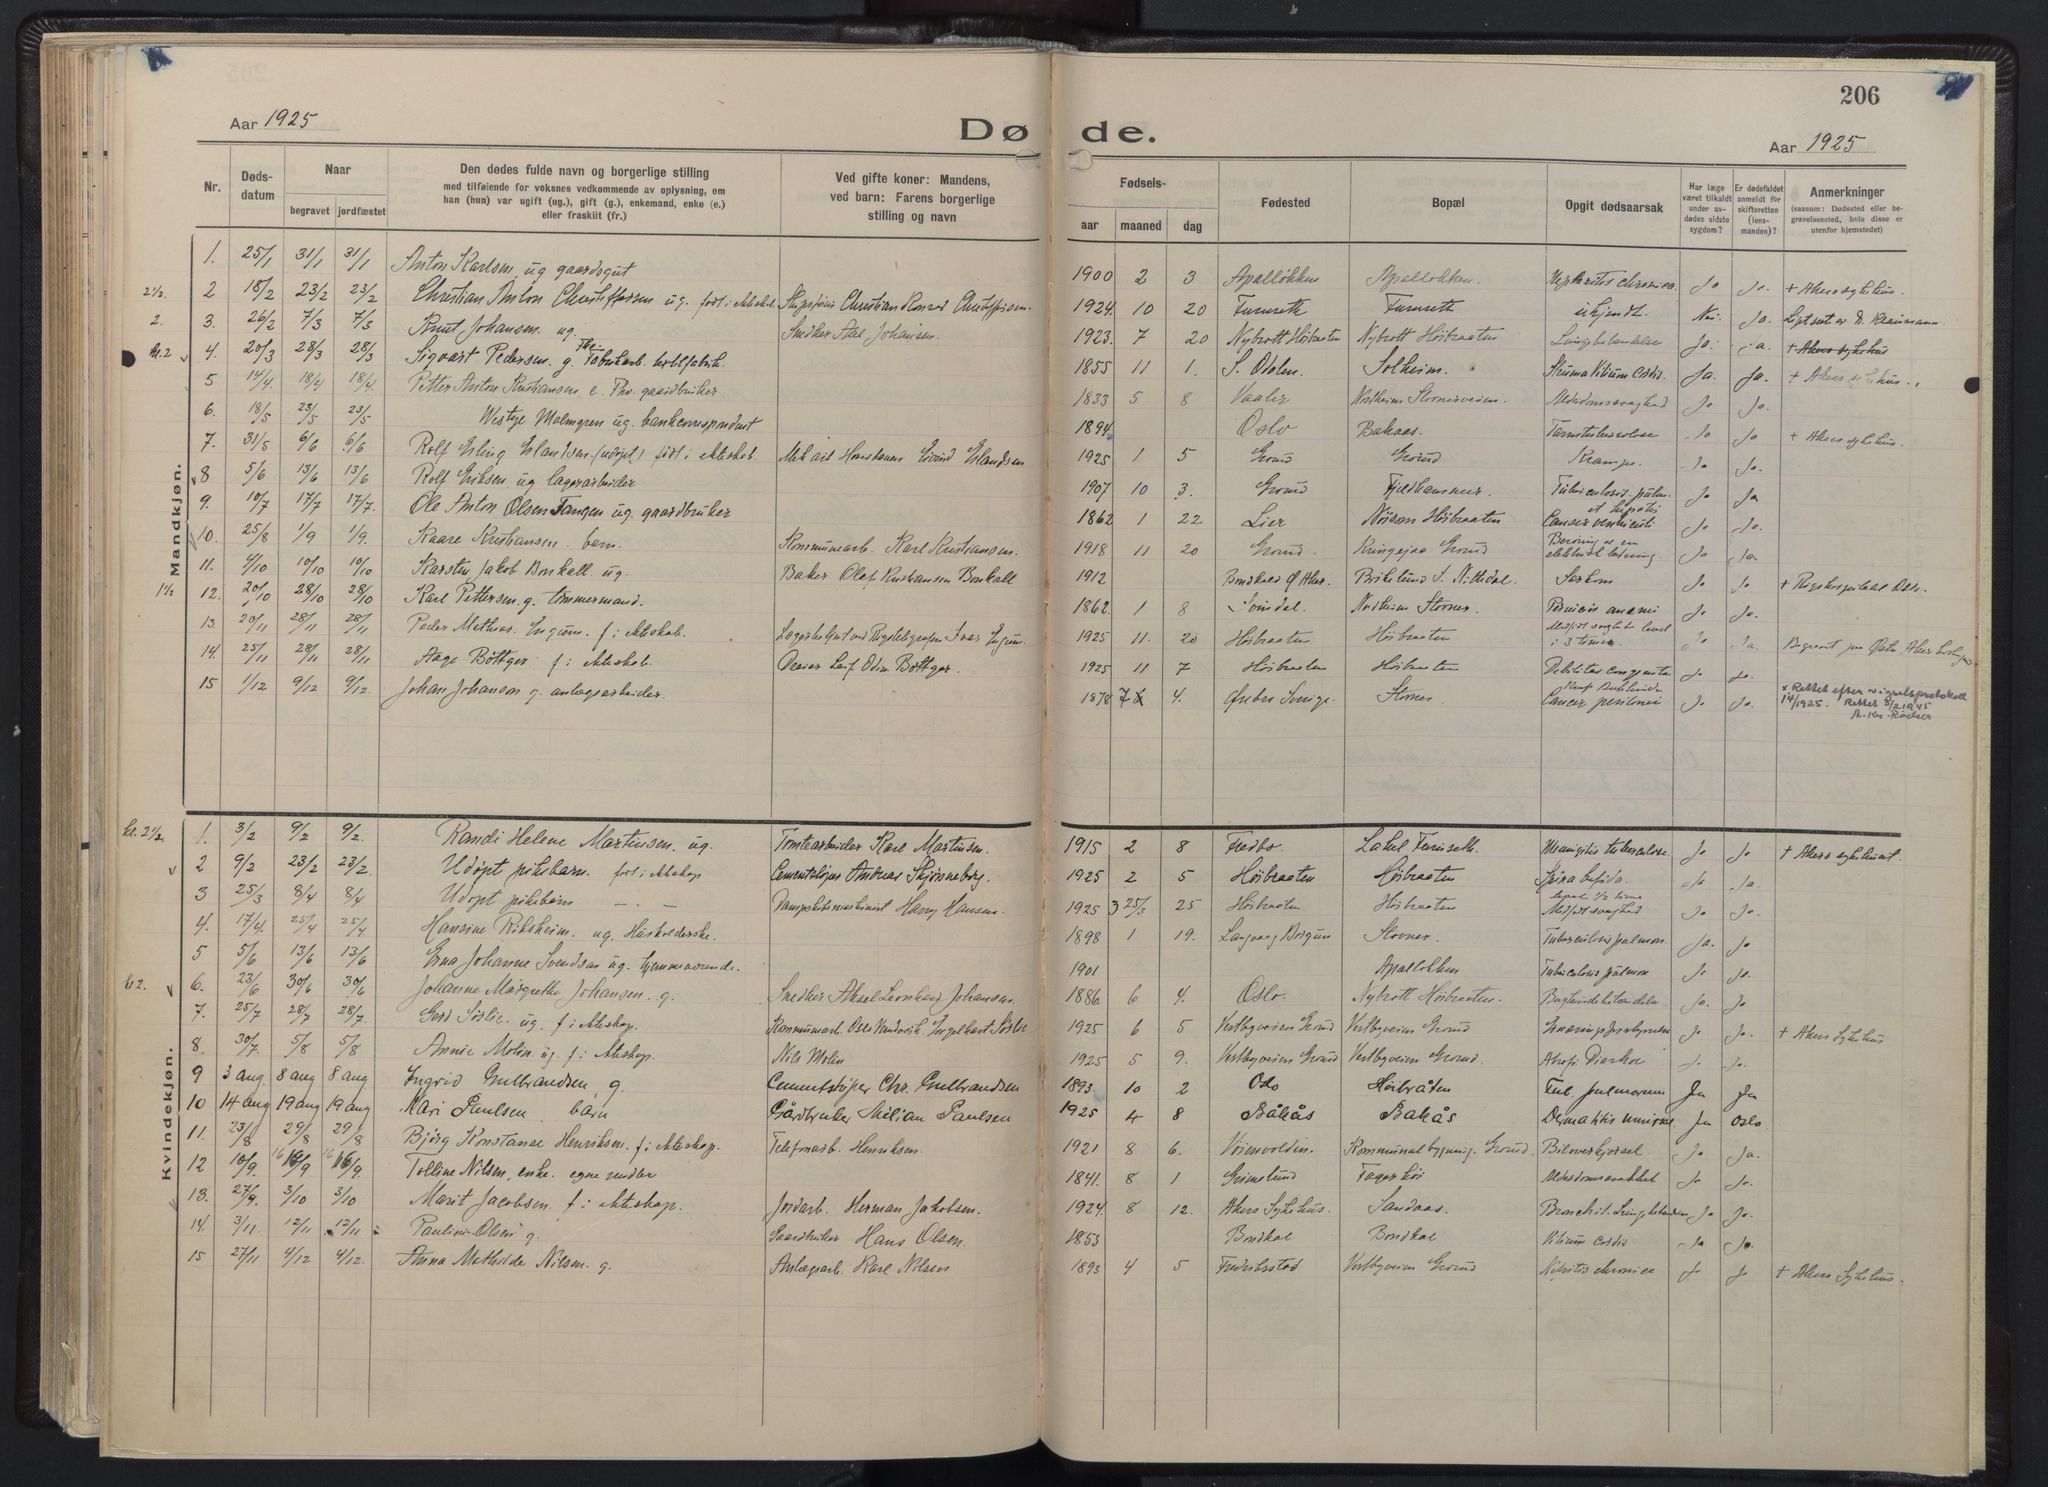 206
Aar 1925
Døde.
Aar 1925
Nr.
Døds-datum
Naar
begravet
jordfæstet
Den dødes fulde navn og borgerlige stilling
med tilføiende for voksnes vedkommende av oplysning, om
han (hun) var ugift (ug.), gift (g.), enkemand, enke (e.)
eller fraskilt (fr.)
Ved gifte koner: Mandens,
ved barn: Farens borgerlige
stilling og navn
Fødsels-
aar
maaned
dag
Fødested
Bopæl
Opgit dødsaarsak
Har læge været tilkaldt under avdødes sidste sygdom?
Er dødsfaldet anmeldt for skifteretten (lensmanden)?
Anmerkninger
(saasom: Dødssted eller begravelsessted, hvis disse er utenfor hjemstedet)
Mandkjøn.
1. 25/1 31/1 31/1 Anton Karlsen, ug gaardsgut 1900 2 3 Apalløkken Apalløkken Ja Ja. + Akers sykehus.
2 18/2 23/2 23/2 Christian Anton Christoffersen ug. født i ekteskab Christian Konrad Christoffersen 1924 10 20 Furuseth Furuseth ukjendt. Nei Ja.
3. 26/2 7/3 7/3 Knut Johansen ug Snedker Johansen. 1923 7 20 Nybrott Höibraaten Nybrott Höibraaten Lungebetændelse Ja. Ja. + Akers sykehus
kl. 2 4. 20/3 28/3 28/3 Sigvart Pedersen g. 1855 11 1. S. Odalen Solheim. Struma Vitium Cordis. Ja. Ja. + Akers sykehus.
5 14/4 18/4 18/4 Petter Anton Kristiansen e. Fhv. gaardbruker 1833 5 8 Vaaler Alderdomssvaghed Ja Ja.
6. 18/5 23/5 23/5 Westye Malmgren ug. bankkorrespondent 1894 Oslo Bakaas. Tarmtuberculose Ja Ja + Akers sykehus.
7. 31/5 6/6 6/6 Rolf Erling Erlandsen (udöpt) född i ekteskab. Eivind Erlandsen 1925 1 5 Grorud Grorud Krampe. Ja Ja.
8 5/6 13/6 13/6 Rolf Eriksen ug lagerarbeider 1907 10 3. Grorud Fjeldhammer. Tuberculosis pulm. Ja Ja
9. 10/7 17/7 17/7. Ole Anton Olsen Tangen ug. gaardbruker 1862 1 22 Lier Höibraaten Cancer ventriculi Ja Ja.
10. 25/8 1/9 1/9. Kaare Kristiansen. barn. Kommunearb. Karl Kristiansen. 1918 11 20 Grorud. Ringejea Grorud Beröring av en elektrisk ledning. Ja Ja.
11. 4/10 10/10 10/10 Karsten Jakob Bonkall. ug. Baker Olaf Kristiansen Bonkall 1912 Sarkom Ja Ja + Rigshospitalet Oslo.
12. 20/10 28/10 28/10 Karl Pettersen. g. tømmermand. 1862 1 8 Nordheim Stovner. Perniciös anæmi Ja Ja.
13 20/11 28/11 28/11 Peder Mathias Engum. f. i ekteskab. 1925 11. 20 Höibraaten Höibraaten Medfödt svaghet levet i 3 timer. Ja Ja.
14. 25/11 28/11 28/11 Aage Böttger f. i ekteskab. Leif Odin Böttger. 1925 11 7 Höibraaten Höibraaten Debilitas congenita Ja Ja.
15 1/12 9/12 9/12. Johan Johanson g. anlægsarbeider. 1878 7 4. Örebro Sverige. Stovner Cancer peritonei Ja Ja. x Rettet efter vigselsprotokoll 14/1925. Rettet 8/2 1945
Kvindekjøn.
kl. 2 1/2. 1. 3/2 9/2 9/2. Randi Helene Martinsen. ug. Tomtearbeider Karl Martinsen. 1915 2 8 Furuseth. Meningitis tuberculose. Ja Ja + Akers sykehus.
2 9/2 23/2 23/2. Udöpt pikebarn. född i ekteskap Cementstöper Andreas Skjönneberg. 1925 2 5 Höibraaten Höibraaten Spina bifida. Ja Ja.
3 25/3 8/4 8/4 Udöpt pikebarn — . — Harry Hansen. 1925 3 25 Höibraaten Höibraaten Medfödt svaghed Ja Ja.
4. 17/4. 25/4 25/4 Hansine Riksheim. ug. 1898 1 19. Stovner. Tuberculosis pulmon. Ja. Ja
5 5/6 13/6 13/6 Erna Johanne Svendsen ug. hjemmeværende. 1901 Apalløkken Tuberculosis pulmon Ja Ja.
kl 2. 6. 23/6 30/6 30/6 Johanne Margrethe Johansen. g. Snedker Aksel Leonhard Johansen. 1886 6 4. Oslo. Nybrott Höibraaten. Bughindebetændelse Ja. Ja
7. 25/7 28/7 28/7. Gerd Sörlie. ug. f. i ekteskap. Engelhart Sörlie 1925 6 5 Vestbyveien Grorud Vestbyveien Grorud Ja Ja. + Akers Sykehus
8. 30/7. 5/8 5/8 Annie Molin. ug. f. i ekteskap. Nils Molin 1925 5 9. Vestbyveien Grorud Vestbyveien Grorud. Atrofi Diarhoe Ja. Ja.
9 3 aug 8 aug 8 aug Ingrid Gulbrandsen g. Cementstöper Chr. Gulbrandsen 1893 10 2 Oslo Höibråten Tub. pulmonum Ja Ja
10 14 aug 19 aug 19 aug Kari Paulsen barn Gårdbruker Milian Paulsen 1925 4 8 Båkås Bakås Ja Oslo
11. 23/8 29/8 29/8 Bjørg Konstanse Henriksen. f. i ekteskap. Telefonarb. Henriksen. 1921 8 6. Kommunal bygning. Grorud. Biloverkjørsel. Ja Ja.
12 10/9. 16/9 16/9 Tolline Nilsen, enke. egne midler 1841. 8 1 Grimslund Fagerhöi Alderdomssvakhet Ja Ja.
13. 27/9. 3/10 3/10 Marit Jacobsen. f. i ekteskap. Jordarb. Herman Jakobsen. 1924 8 12. Akers Sykehus. Sandaas. Ja Ja.
14. 3/11. 12/11 12/11 Pauline Olsen g. Gaardbruker Hans Olsen. 1853 Vitium cordis Ja Ja.
15 27/11 4/12 4/12. Anna Mathilde Nilsen. g. Anlægsarb. Karl Nilsen 1893 4 5 Fredrikstad Vestbyveien Grorud Nefritis chronica Ja Ja + Akers Sykehus.